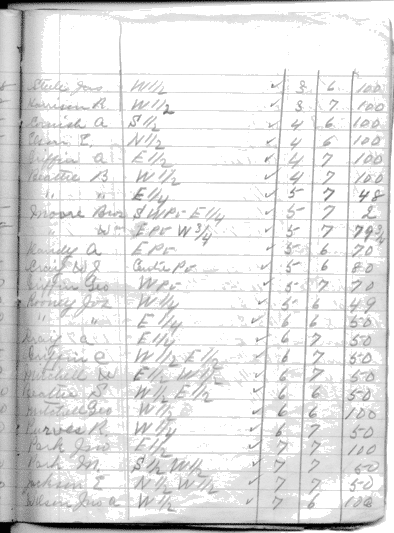 Steele Jas W 1/2 ✓ 3 6 100
Harrison R. W 1/2 ✓ 3 7 100
Cornish A S 1/2 ✓ 4 6 100
E. N 1/2 ✓ 4 6 100
Griffin A E 1/2 ✓ 4 7 100
Beattie B. W 1/2 ✓ 4 7 100
" " E 1/4 ✓ 5 7 48
Moore Bros S W Pt E 1/4 ✓ 5 7 2
" E Pt W 3/4 ✓ 5 7 79 3/4
Handy A E Pt ✓ 5 6 70
Craig W J Centre Pt ✓ 5 6 80
Griffin Geo W Pt ✓ 5 7 70
Rooney Jos W 1/4 ✓ 5 6 49
" " E 1/4 ✓ 6 6 50
A E 1/4 ✓ 6 7 50
Griffin C W 1/2 E 1/2 ✓ 6 7 50
Mitchell W E 1/2 W 1/2 ✓ 6 7 50
Beattie S W 1/2 E 1/2 ✓ 6 6 50
Mitchell Geo W 1/2 ✓ 6 6 100
Purves R. W 1/4 ✓ 6 7 50
Park Jno E 1/2 ✓ 7 7 100
Park M. S 1/2 W 1/2 ✓ 7 7 50
Jackson E N 1/2 W 1/2 ✓ 7 7 50
Wilson Jno A W 1/2 ✓ 7 6 100